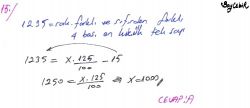 15.)
1235 = rak. farklı ve sıfırdan farklı
4 bas. en küçük tek sayı
1235 = x.125/100 - 15
1250 = x.125/100 x=1000
CEVAP: A